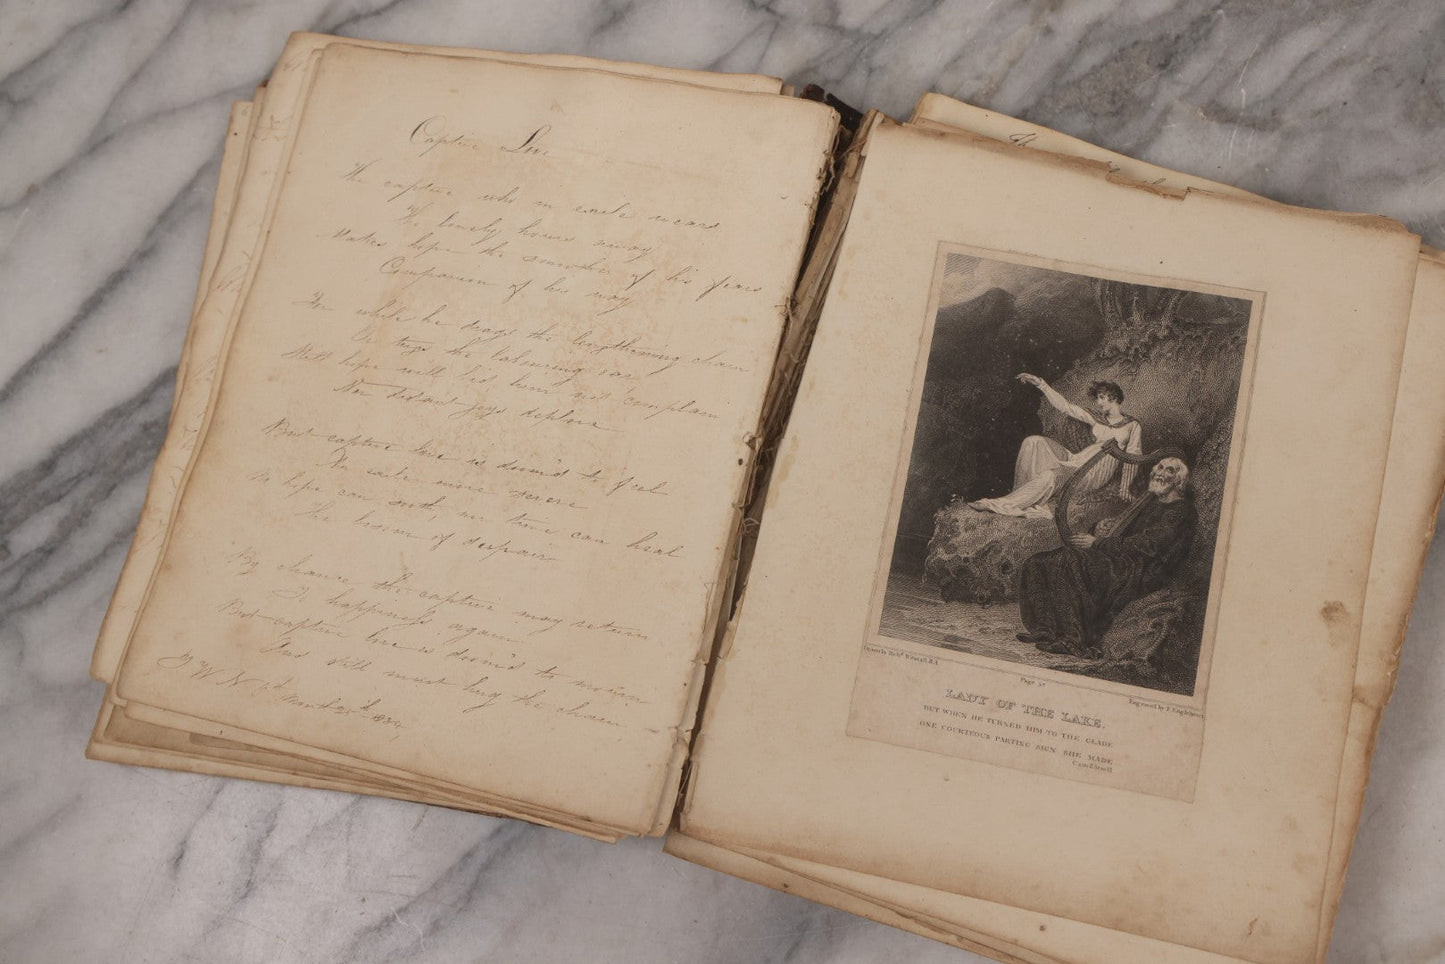 Captive Love
The captive who in exile wears
The lonely hours away
Makes hope the soother of his fears
Companion of his way
For while he drags the lengthening chain
Or tugs the labouring oar
Still hope will bid him not complain
Nor distant joys deplore
But captive love is doom'd to feel
An exile more severe
No hope can sooth, nor time can heal
The bosom of despair
By chance the captive may return
To happiness again
But captive love is doom'd to mourn
And still must hug the chain
W N
LADY OF THE LAKE.
BUT WHEN HE TURNED HIM TO THE GLADE
ONE COURTEOUS PARTING SIGN SHE MADE
Canto II
Drawn by Richd. Westall R.A.
Page 57
Engraved by F. Engleheart